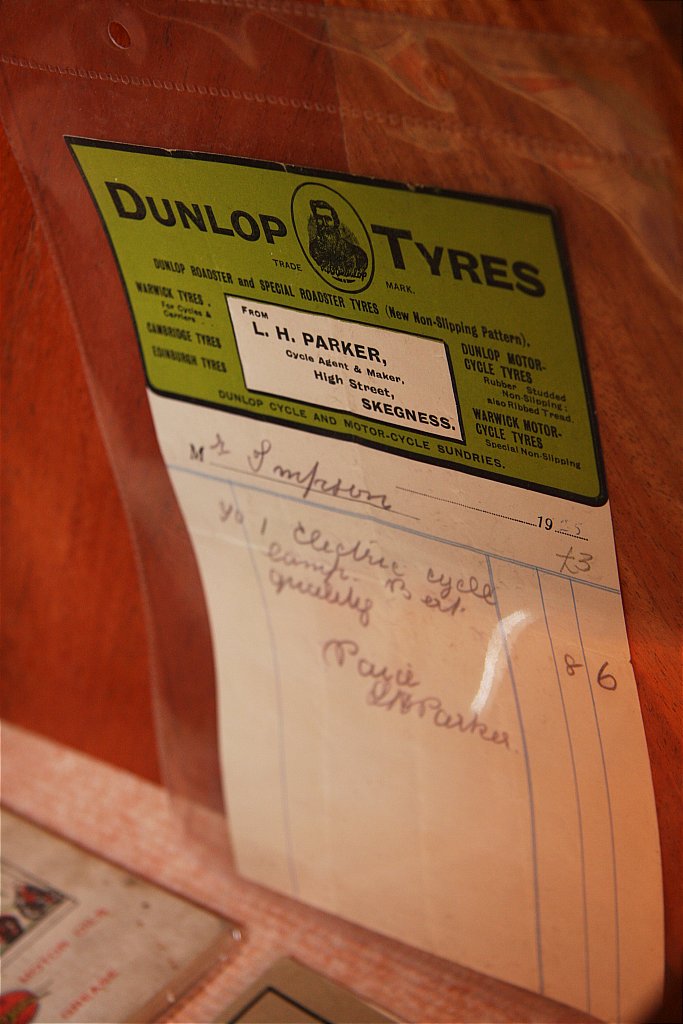 DUNLOP TYRES
TRADE MARK.
DUNLOP ROADSTER and SPECIAL ROADSTER TYRES (New Non-Slipping Pattern).
WARWICK TYRES
For Cycles &
Carriers
CAMBRIDGE TYRES
EDINBURGH TYRES
FROM
L. H. PARKER,
Cycle Agent & Maker,
High Street,
SKEGNESS.
DUNLOP MOTOR-
CYCLE TYRES
Rubber Studded
Non-Slipping;
also Ribbed Tread.
WARWICK MOTOR-
CYCLE TYRES
Special Non-Slipping
DUNLOP CYCLE AND MOTOR-CYCLE SUNDRIES.
Mr Simpson
19
1 Electric cycle
lamp. Best
quality
8 6
Paid
LHParker.
MOTOR OILS
GREASE